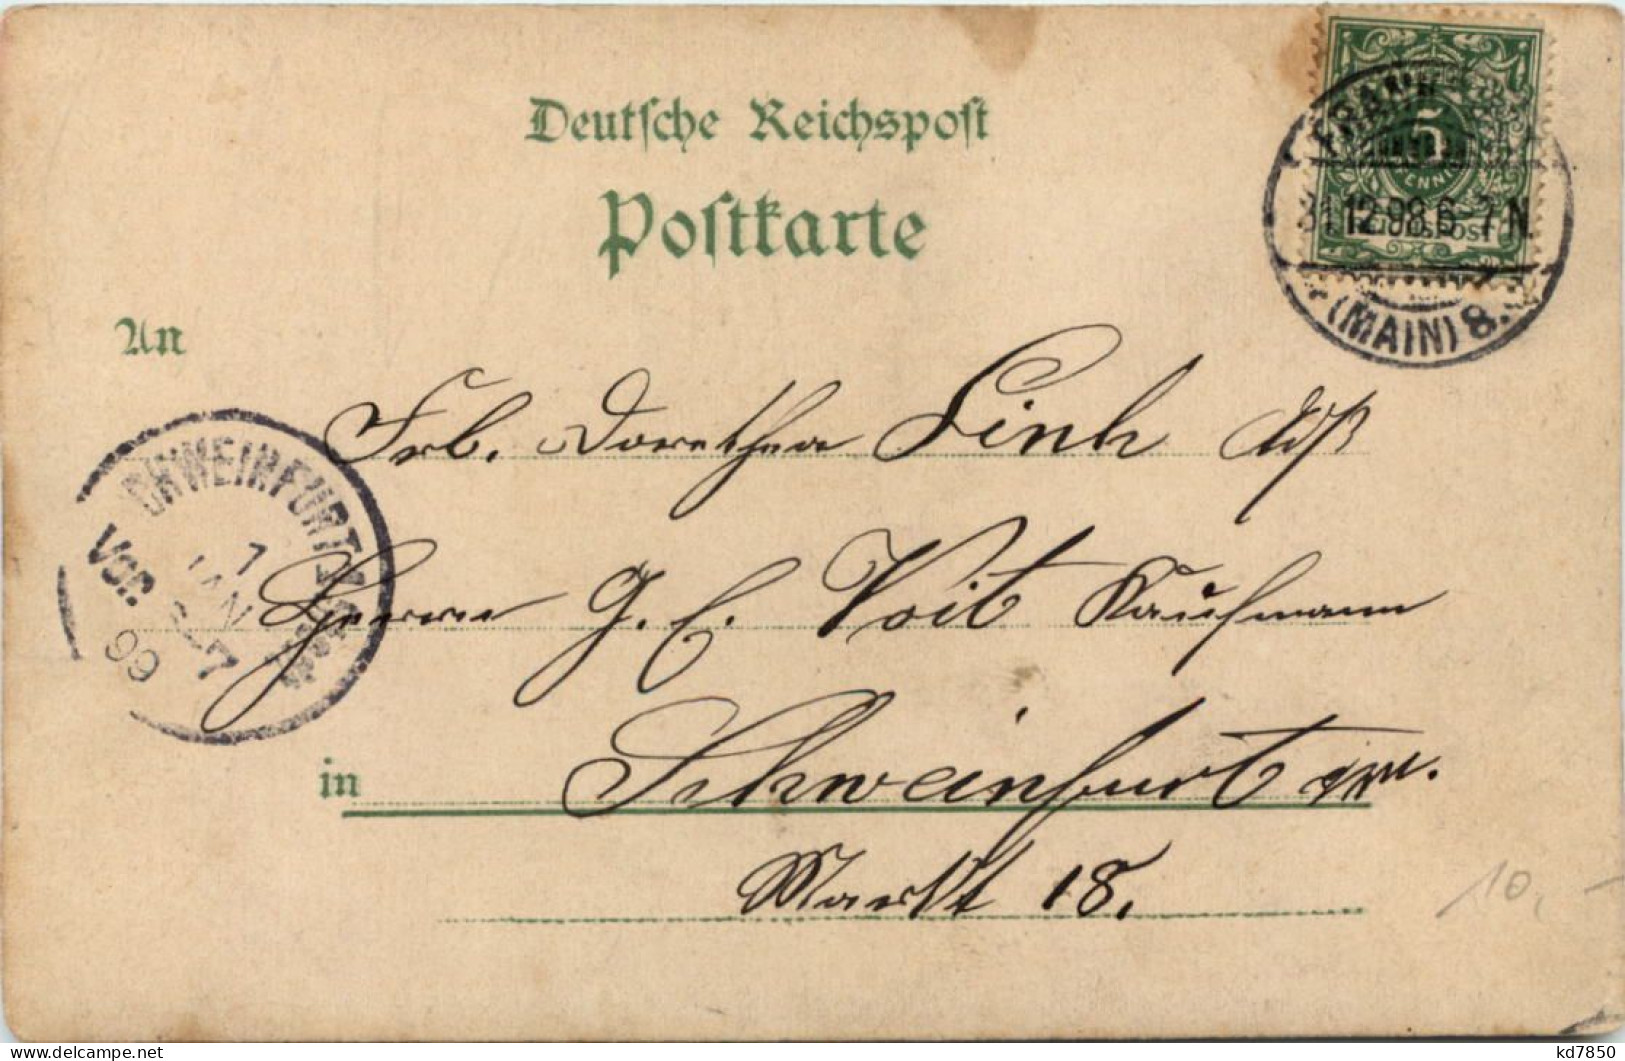 Deutsche Reichspost
Postkarte
An
Frl. Dorothea Link
Herrn G. E. Voit Kaufmann
in Schweinfurt a/M.
Markt 18.
FRANK
5
PFENNIG
REICHSPOST
31.12.98.6-7N.
(MAIN) 8.
SCHWEINFURT
1
JAN
Vor. 6-7
99
10,-
kd7850